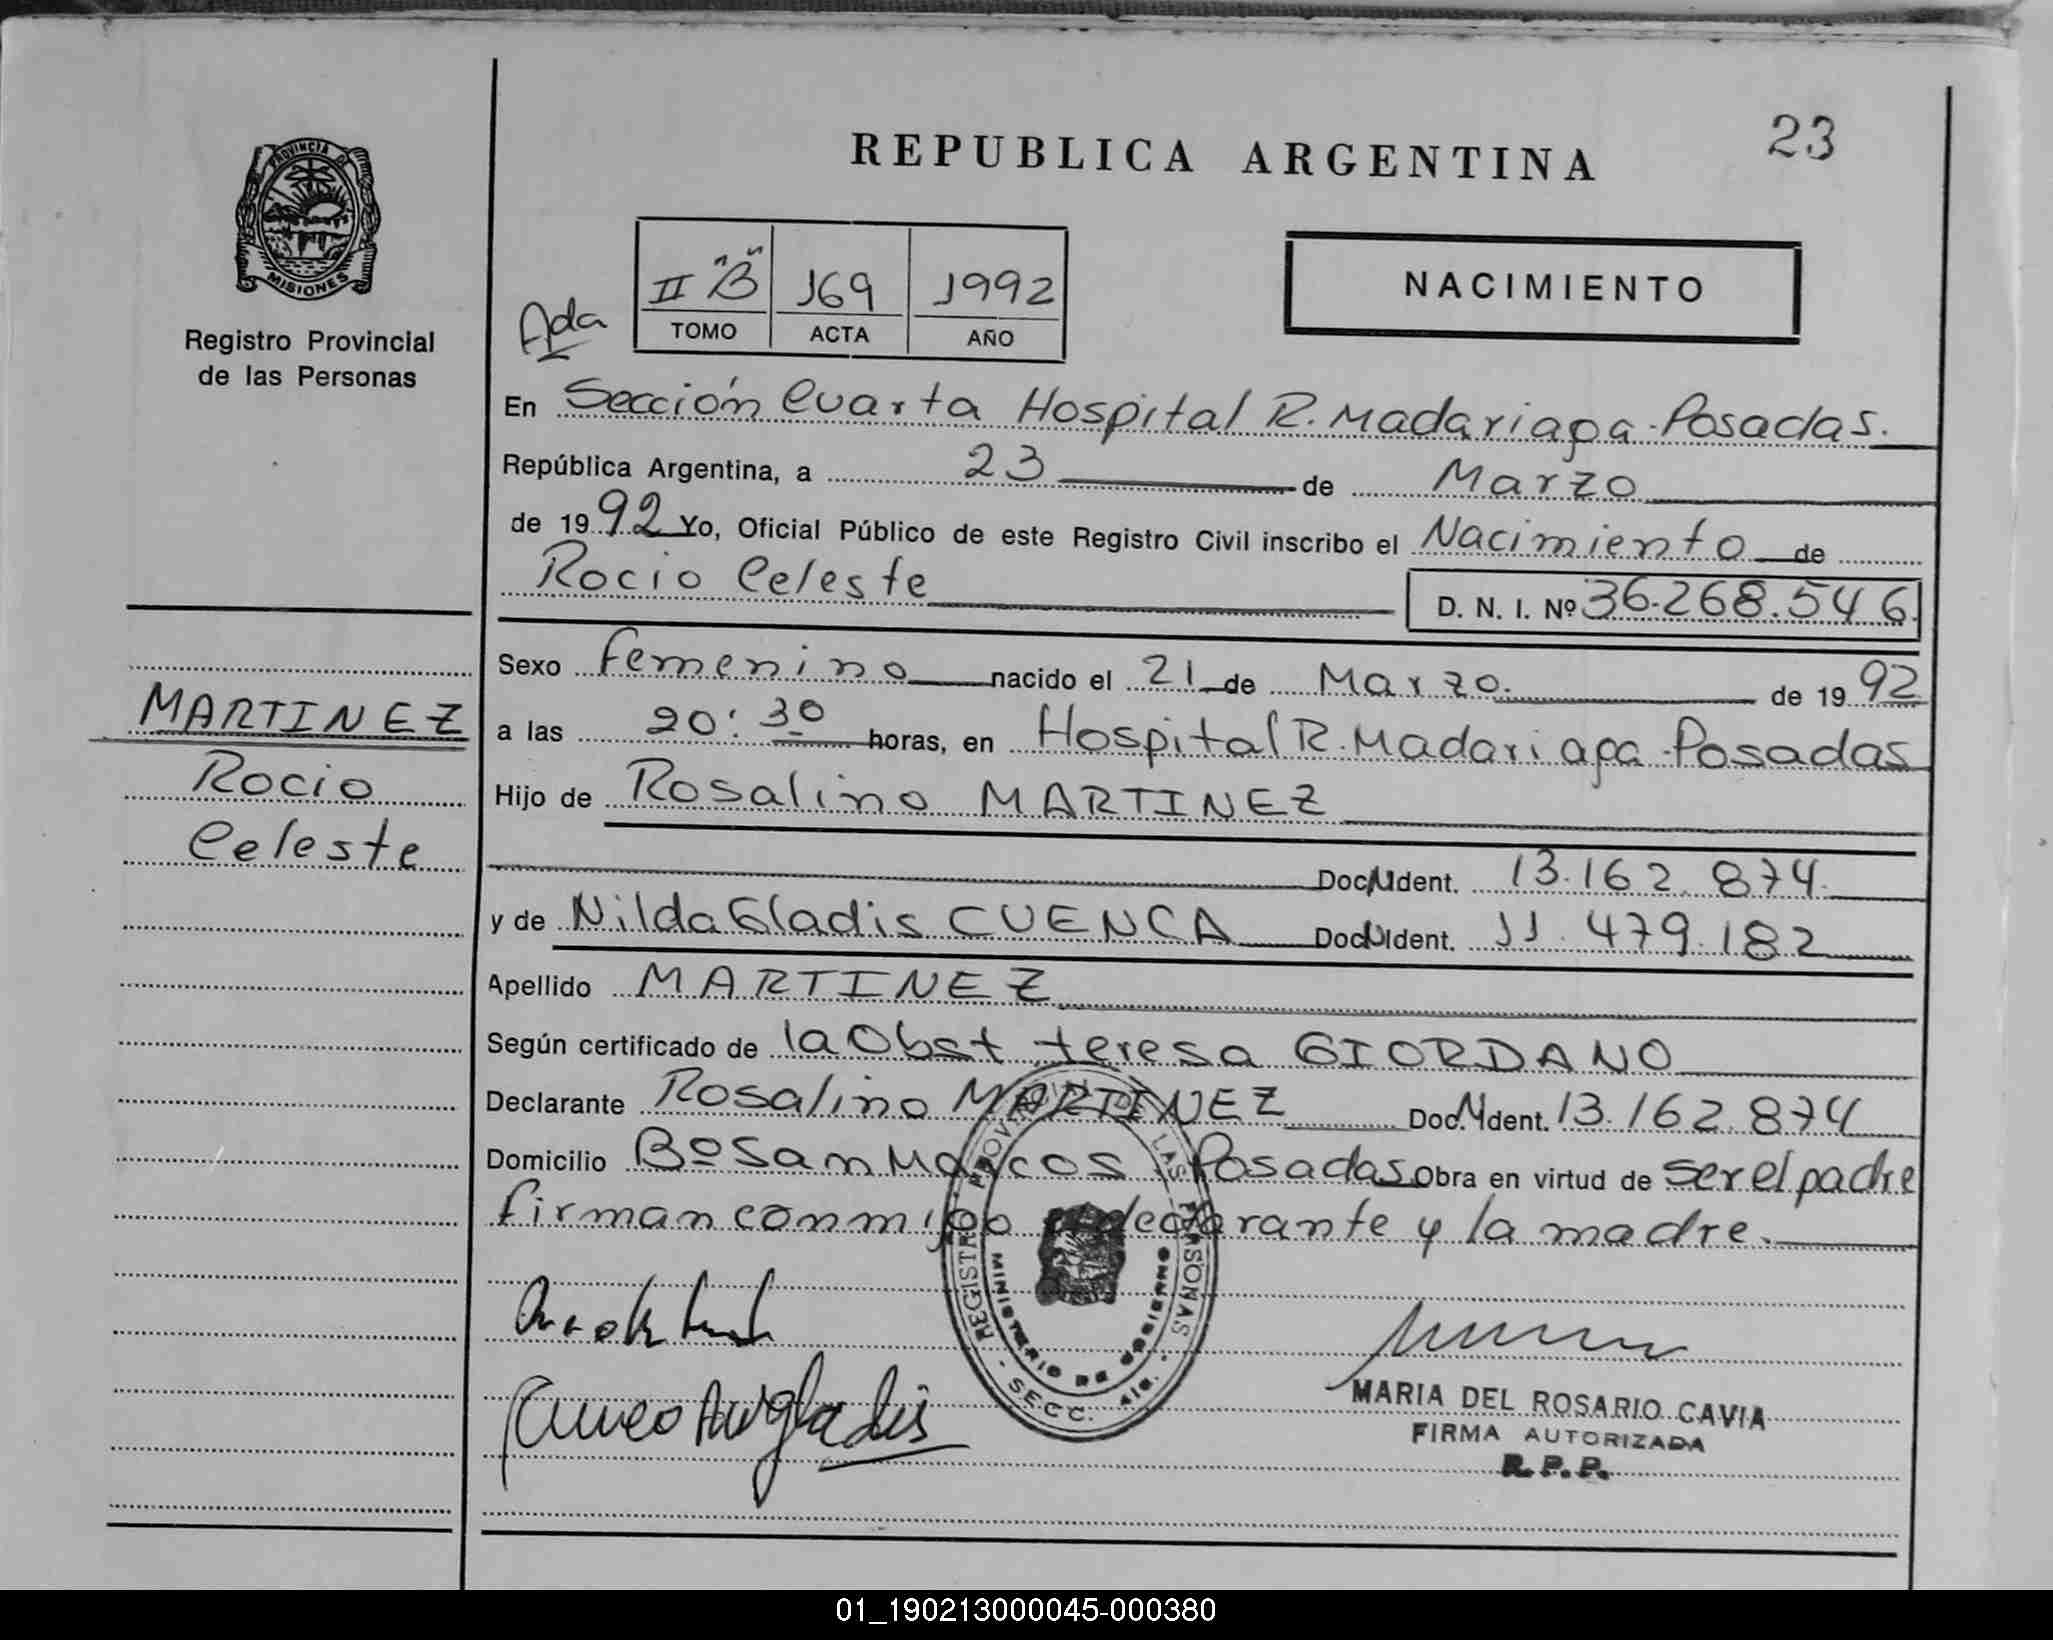 REPUBLICA ARGENTINA
23
PROVINCIA DE
MISIONES
Registro Provincial
de las Personas
Ada
II "B" 169 1992
TOMO ACTA AÑO
NACIMIENTO
En Sección Cuarta Hospital R. Madariaga - Posadas.
República Argentina, a 23 de Marzo
de 1992 Yo, Oficial Público de este Registro Civil inscribo el Nacimiento de
Rocio Celeste D. N. I. Nº 36.268.546.
Sexo Femenino nacido el 21 de Marzo. de 1992
a las 20:30 horas, en Hospital R. Madariaga - Posadas
Hijo de Rosalino MARTINEZ
Doc. Ident. 13.162.874.
y de Nilda Gladis CUENCA Doc. Ident. 11.479.182
Apellido MARTINEZ
Según certificado de la Obst teresa GIORDANO
Declarante Rosalino MARTINEZ Doc. Ident. 13.162.874
Domicilio Bº San Marcos - Posadas Obra en virtud de ser el padre
firman conmigo el declarante y la madre.
MARTINEZ
Rocio
Celeste
REGISTRO PROVINCIAL DE LAS PERSONAS
MINISTERIO DE GOBIERNO
SECC. 4ta.
MARIA DEL ROSARIO CAVIA
FIRMA AUTORIZADA
R.P.P.
01_190213000045-000380